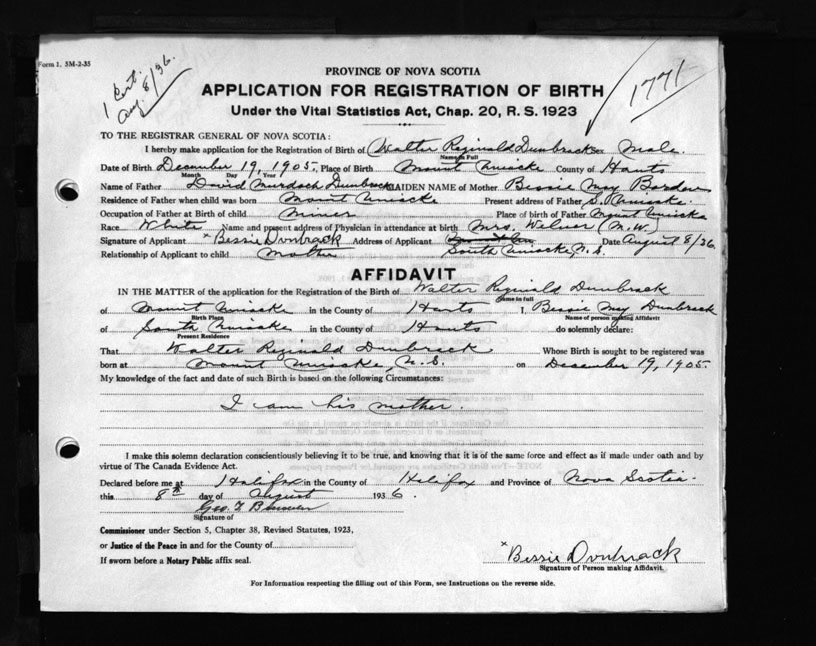 Form 1. 5M-2-35
1 Cert.
Aug. 8/36.
1771
PROVINCE OF NOVA SCOTIA
APPLICATION FOR REGISTRATION OF BIRTH
Under the Vital Statistics Act, Chap. 20, R. S. 1923
TO THE REGISTRAR GENERAL OF NOVA SCOTIA:
I hereby make application for the Registration of Birth of Walter Reginald Dunbrack Sex Male
Name in Full
Date of Birth December 19, 1905. Place of Birth Mount Uniacke County of Hants
Month Day Year
Name of Father David Murdoch Dunbrack MAIDEN NAME of Mother Bessie May
Residence of Father when child was born Mount Uniacke Present address of Father S. Uniacke.
Occupation of Father at Birth of child Miner Place of birth of Father Mount Uniacke
Race White Name and present address of Physician in attendance at birth Mrs. (M.W.)
Signature of Applicant × Bessie Donbrack Address of Applicant Date August 8/36.
Relationship of Applicant to child Mother South Uniacke, N.S.
AFFIDAVIT
IN THE MATTER of the application for the Registration of the Birth of Walter Reginald Dunbrack
Name in full
of Mount Uniacke in the County of Hants I, Bessie May Dunbrack
Birth Place Name of person making Affidavit
of South Uniacke in the County of Hants do solemnly declare:
Present Residence
That Walter Reginald Dunbrack Whose Birth is sought to be registered was
born at Mount Uniacke, N.S. on December 19, 1905.
My knowledge of the fact and date of such Birth is based on the following Circumstances:
I am his mother.
I make this solemn declaration conscientiously believing it to be true, and knowing that it is of the same force and effect as if made under oath and by
virtue of The Canada Evidence Act.
Declared before me at Halifax in the County of Halifax and Province of Nova Scotia.
this 8th day of August 1936.
Geo. F.
Signature of
Commissioner under Section 5, Chapter 38, Revised Statutes, 1923,
or Justice of the Peace in and for the County of
If sworn before a Notary Public affix seal.
× Bessie Donbrack
Signature of Person making Affidavit.
For Information respecting the filling out of this Form, see Instructions on the reverse side.